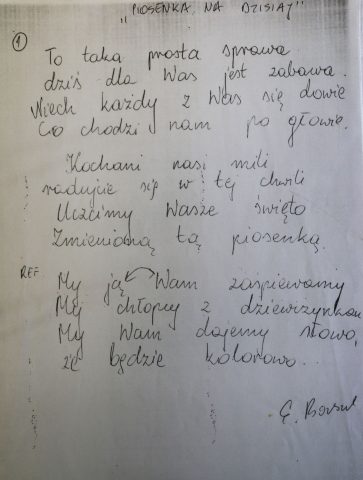 "PIOSENKA NA DZISIAJ"
1
To taka prosta sprawa
dziś dla Was jest zabawa.
Niech każdy z Was się dowie
Co chodzi nam po głowie.
Kochani nasi mili
radujcie się w tej chwili
Uczcimy Wasze święto
Zmienioną tą piosenką.
REF. My ją Wam zaśpiewamy
My chłopcy z dziewczynkami
My Wam dajemy słowo,
że będzie kolorowo.